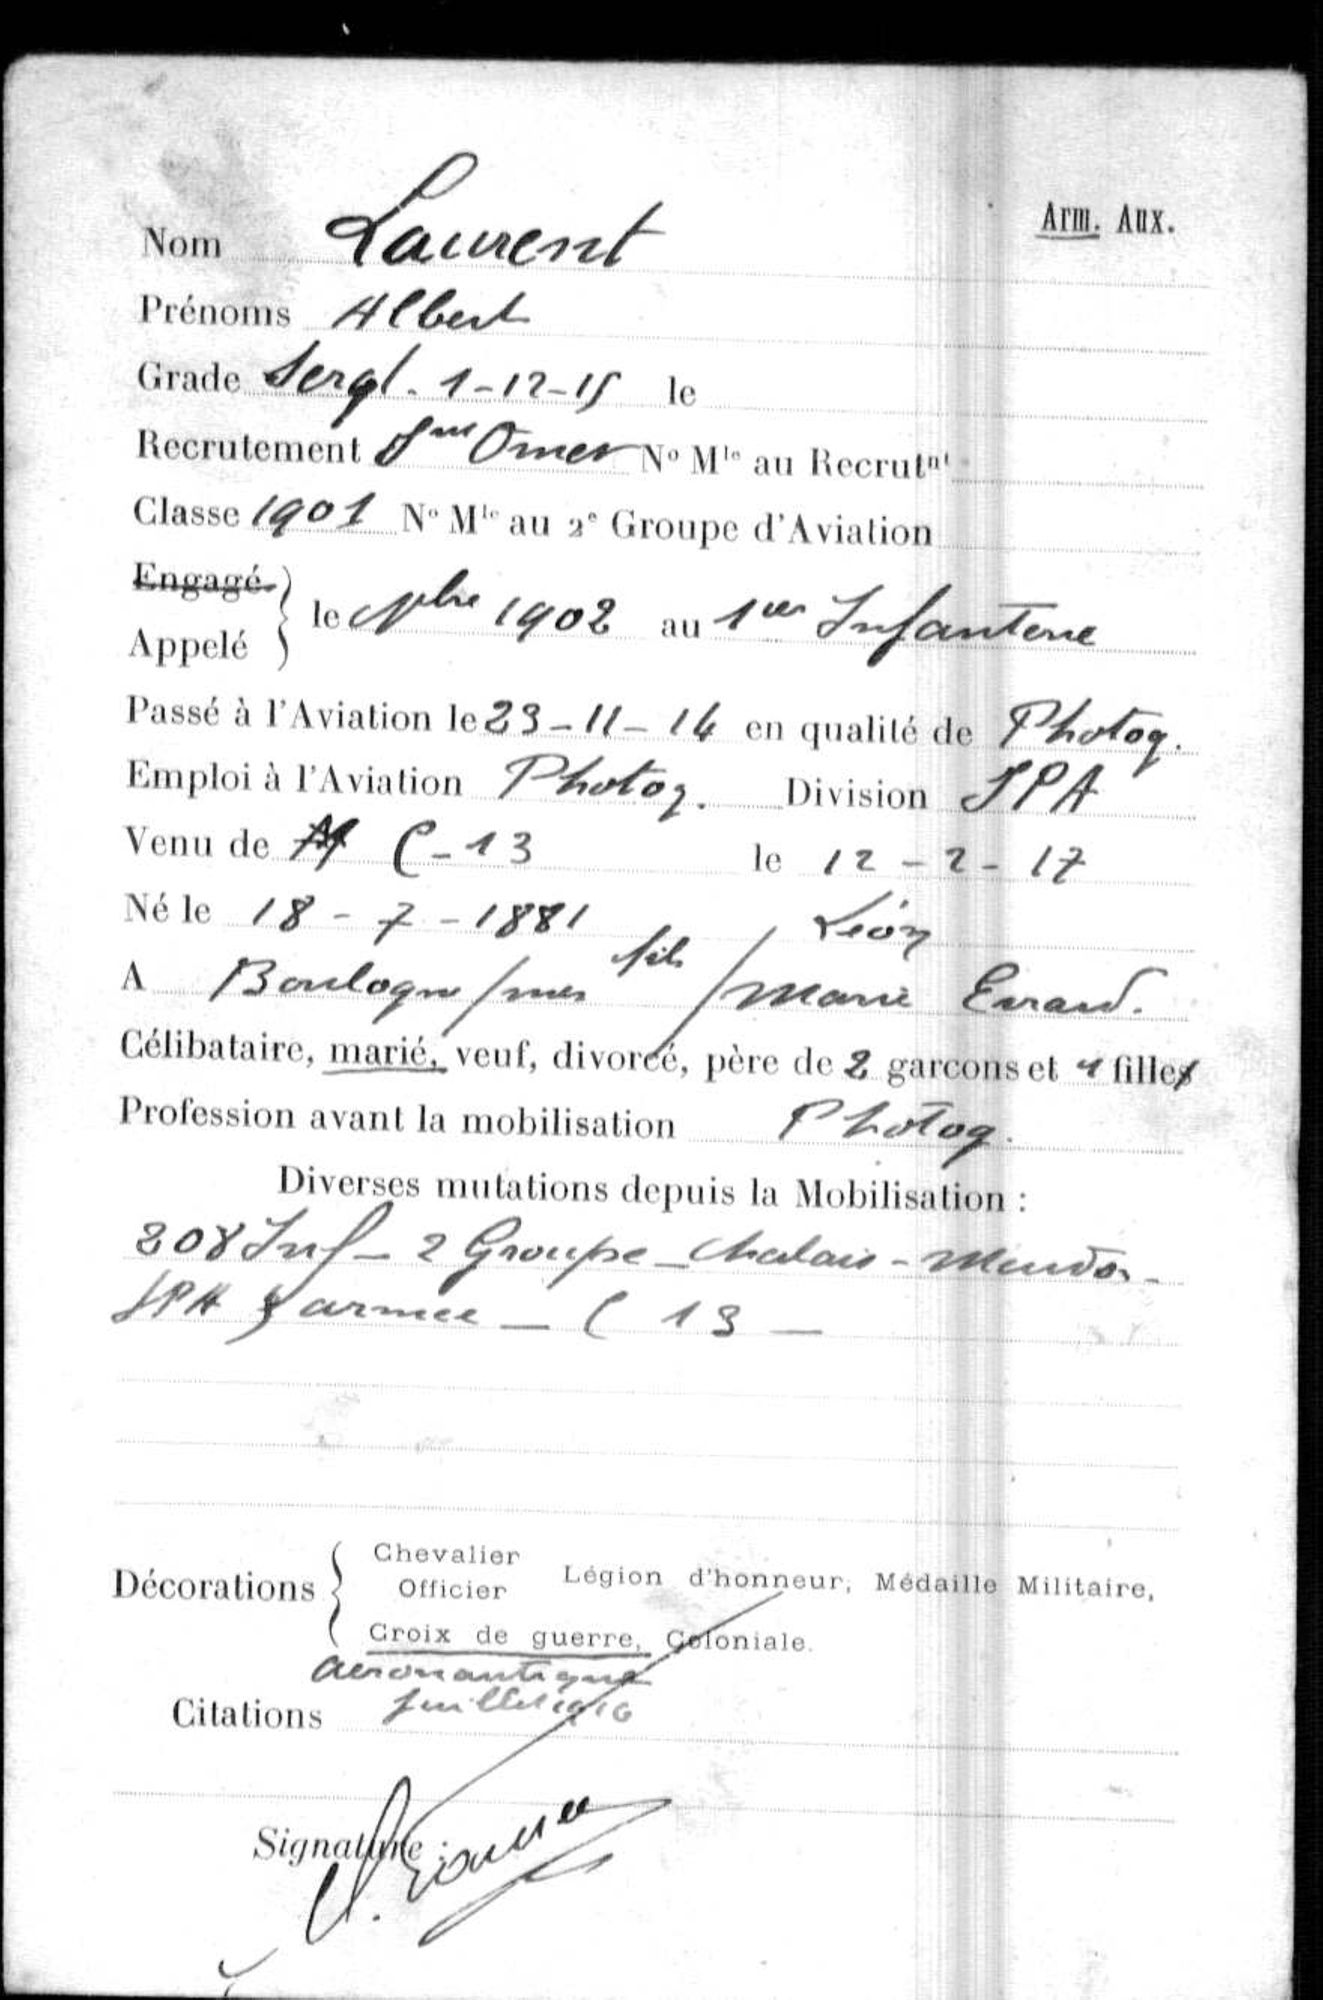 Arm. Aux.
Nom Laurent
Prénoms Albert
Grade Sergt. 1-12-15 le
Recrutement St Omer No Mle au Recrutnt
Classe 1901 No Mle au 2e Groupe d'Aviation
Engagé
Appelé } le 9bre 1902 au 1er Infanterie
Passé à l'Aviation le 23-11-14 en qualité de Photog.
Emploi à l'Aviation Photog. Division SPA
Venu de C-13 le 12-2-17
Né le 18-7-1881 Léon
A Boulogne/mer fils Marie Evrard.
Célibataire, marié, veuf, divorcé, père de 2 garçons et 1 fille
Profession avant la mobilisation Photog.
Diverses mutations depuis la Mobilisation :
208 Inf - 2 Groupe - Chalais - Meudon -
SPA armée - C 13 -
Chevalier
Décorations { Officier Légion d'honneur, Médaille Militaire,
Croix de guerre, Coloniale.
aeronautique
Citations juillet 1916
Signature :